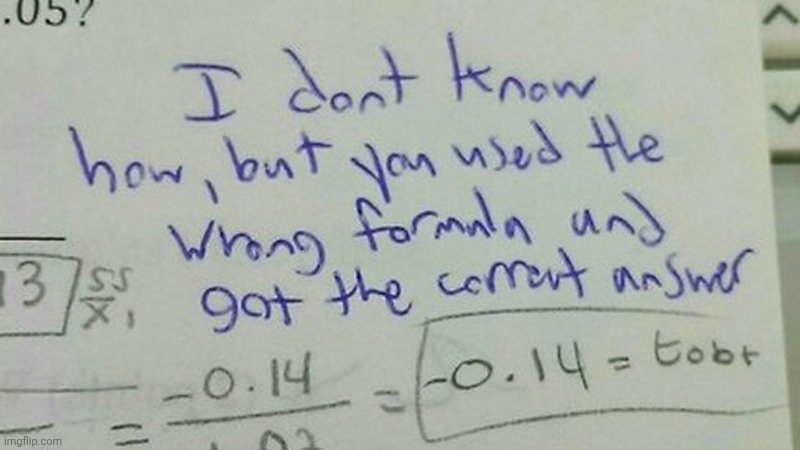 .05?
I dont know
how, but you used the
wrong formula and
got the correct answer
13 SS
X 1
= -0.14 = -0.14 = tobt
imgflip.com